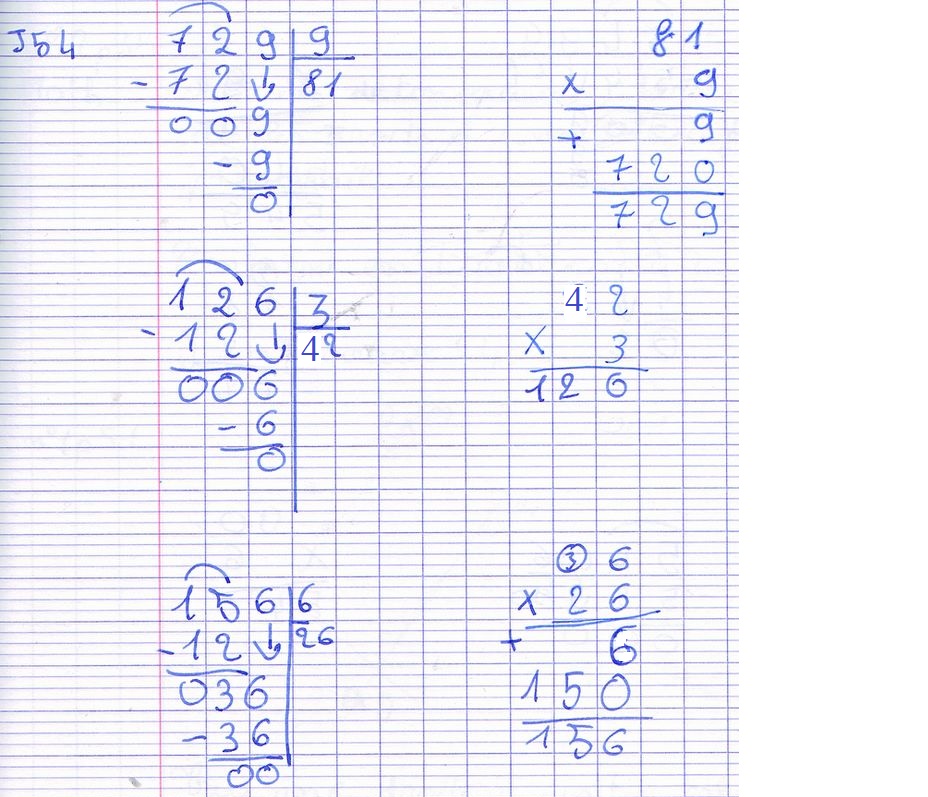 J54
7 2 9 | 9
- 7 2 ↓ | 81
0 0 9
- 9
0
81
x 9
+ 9
7 2 0
7 2 9
1 2 6 | 3
- 1 2 ↓ | 42
0 0 6
- 6
0
4 2
x 3
1 2 6
1 5 6 | 6
- 1 2 ↓ | 26
0 3 6
- 3 6
0 0
③ 6
x 2 6
+ 6
1 5 0
1 5 6